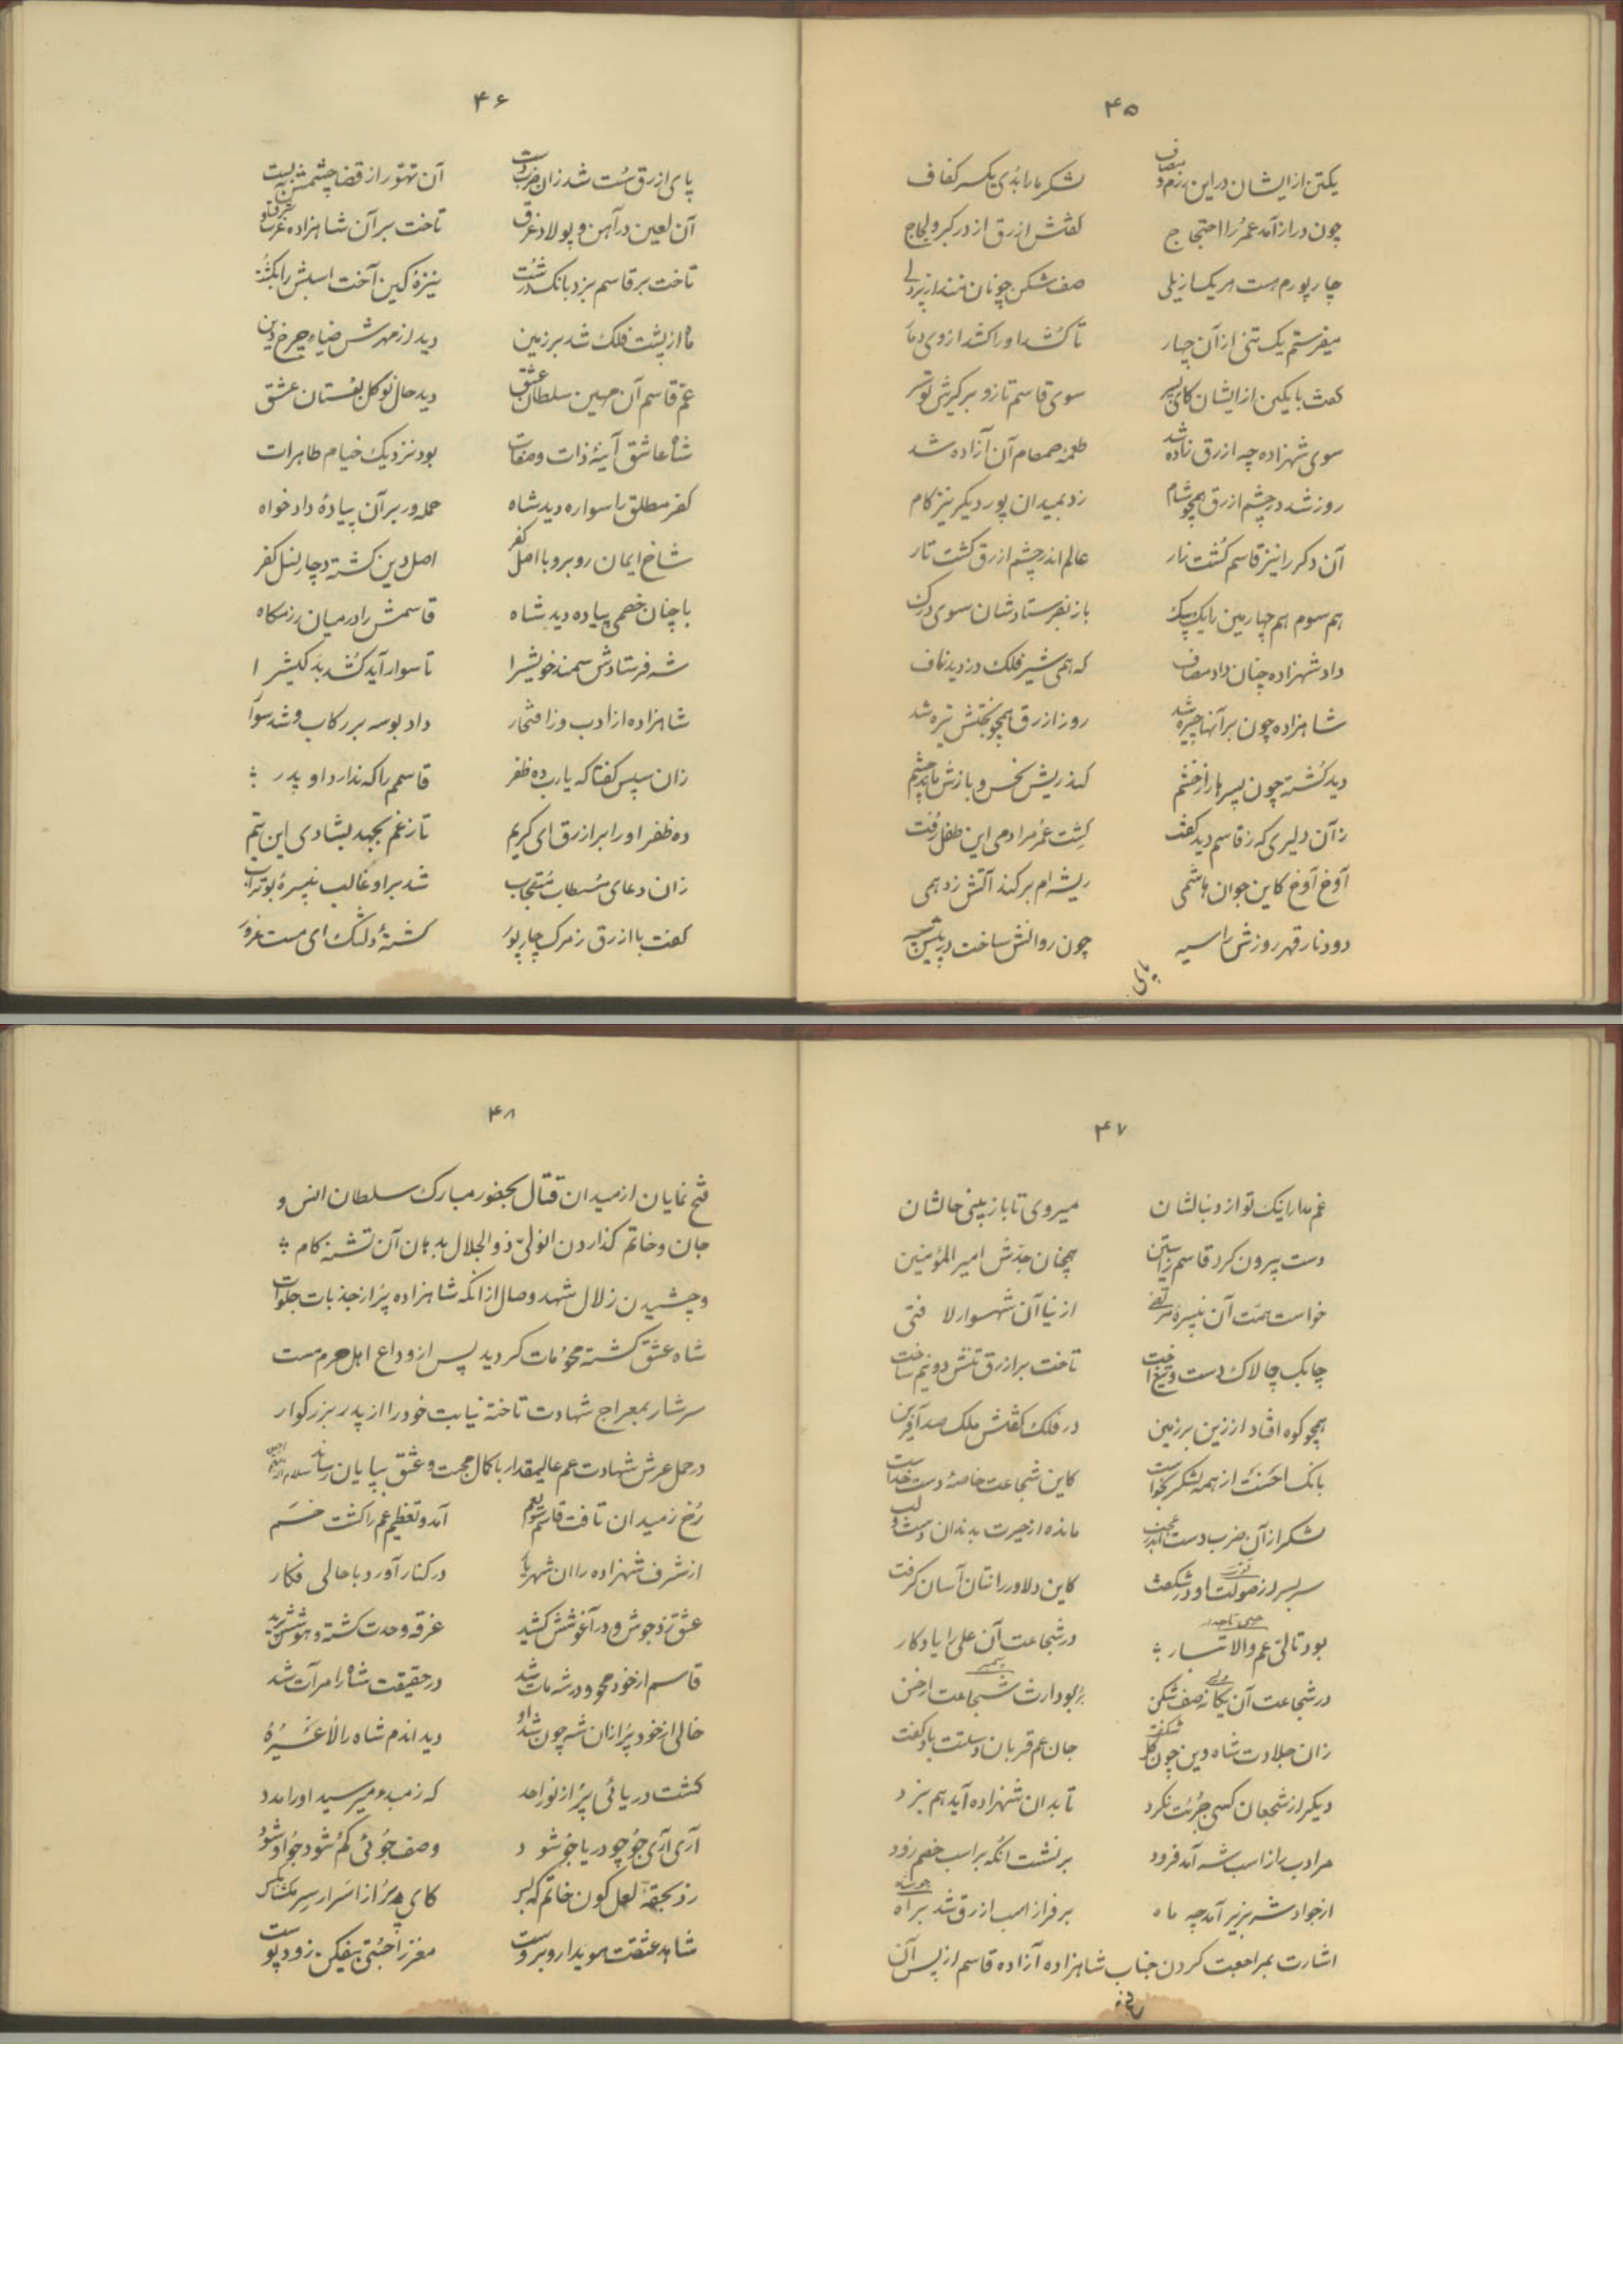 ۴۵
یکتن از ایشان در این رزم و مصاف لشکر ما را بدی یکسر کفاف
چون دراز آمد عمر را احتجاج گفتش ازرق از در کبر و لجاج
چار پورم هست هر یک از یلی صف شکن چونان منند از پردلی
میفرستم یک تنی از آن چهار تا کشد او را کشد از وی دمار
گفت با یکتن از ایشان کای پسر سوی قاسم تاز و برگیرش تو سر
سوی شهزاده چه ازرق زاده شد طعمهٔ صمصام آن آزاده شد
روز شد در چشم ازرق همچو شام زد بمیدان پور دیگر نیز کام
آن دگر را نیز قاسم کشت زار عالم اندر چشم ازرق گشت تار
هم سوم هم چهارمین را یک بیک باز بفرستادشان سوی درک
داد شهزاده چنان داد مصاف که همی شیر فلک دزدید ناف
شاهزاده چون بر آنها چیره شد روز ازرق همچو بختش تیره شد
دید کشته چون پسرها را ز خشم کند ریش نحس و بازش ماند چشم
زآن دلیری که ز قاسم دید گفت کشت عمر مرادم این طفل رفت
آوخ آوخ کاین جوان هاشمی ریشه‌ام بر کند آتش زد همی
دود نار قهر روزش را سیه چون روانش ساخت در پیش سپه
پای
۴۶
پای ازرق سست شد زان ضرب دست آن تهور از قضا چشمش ببست
آن لعین در آهن و پولاد غرق تاخت بر آن شاهزاده
تاخت بر قاسم بزد بانک درشت نیزهٔ کین آخت اسبش را بکشت
ماه از پشت فلک شد بر زمین دید از مهرش ضیاء چرخ دین
عم قاسم آن مهین سلطان عشق دید حال نوگل بستان عشق
شاه عاشق آینهٔ ذات و صفات بود نزدیک خیام طاهرات
کفر مطلق را سواره دید شاه حمله‌ور بر آن پیادهٔ دادخواه
شاخ ایمان روبرو با اصل کفر اصل دین گشته دچار نسل کفر
با چنان خصمی پیاده دید شاه قاسمش را در میان رزمگاه
شه فرستادش سمند خویش را تا سوار آید کشد بد کیش را
شاهزاده از ادب وز افتخار داد بوسه بر رکاب و شد سوار
زان سپس گفتا که یا رب ده ظفر قاسمم را که ندارد او پدر
ده ظفر او را بر ازرق ای کریم تا ز غم بجهد بشادی این یتیم
زان دعای مستطاب مستجاب شد بر او غالب نبیرهٔ بوتراب
گفت با ازرق ز مرک چار پور گشتهٔ دلتنگ ای مست غرور
۴۷
غم مدار اینک تو از دنبالشان میروی تا باز بینی حالشان
دست بیرون کرد قاسم ز آستین همچنان جدش امیر المؤمنین
خواست همت آن نبیرهٔ مرتضی از نیا آن شهسوار لا فتی
چابک چالاک دست و تیغ آخت تاخت بر ازرق تنش دو نیم ساخت
همچو کوه افتاد از زین بر زمین در فلک گفتش ملک صد آفرین
بانک احسنت از همه لشکر بخواست کاین شجاعت خاصهٔ دست خداست
لشکر از آن ضرب دست اندر عجب مانده از حیرت بدندان دست و لب
سر بسر از صولت او در شکفت کاین دلاور را نتان آسان گرفت
بود تالی عم والاتبار در شجاعت آن علی را یادگار
در شجاعت آن یگانه صف شکن بُد بود ارث شجاعت از حسن
زان جلادت شاه دین چون گل شکفت جان عم قربان دستت باد گفت
دیگر از شجعان کسی جرئت نکرد تا بدان شهزاده آید هم نبرد
مر ادب را از اسب شه آمد فرود بر نشست آنگه بر اسب خصم زود
از جواد شه بزیر آمد چه ماه بر فراز اسب ازرق شد براه
اشارت بمراجعت کردن جناب شاهزاده آزاده قاسم از پس آن
فتح
۴۸
فتح نمایان از میدان قتال بحضور مبارک سلطان انس و
جان و خاتم گذاردن انولی ذو الجلال بدهان آن تشنه کام
و چشیدن زلال شهد وصال از آنکه شاهزاده پر از جذبات جلوات
شاه عشق گشته محو و مات گردید پس از وداع اهل حرم مست
سرشار بمعراج شهادت تاخته نیابت خود را از پدر بزرگوار
در حمل عرش شهادت عم عالیمقدار با کمال محبت و عشق بپایان رساند
رخ ز میدان تافت قاسم سوی عم آمد و تعظیم عم را گشت خم
از شرف شهزاده را ان شهریار در کنار آورد با حالی فکار
عشق زد جوش و در آغوشش کشید غرقه وحدت گشته و هوشش پرید
قاسم از خود محو و در شه مات شد در حقیقت شاه را مرآت شد
خالی از خود پر از ان شه چون شد او دید اندم شاه را لا غیره
گشت دریائی پر از نور احد که ز مبدء میرسید او را مدد
آری آری جو چو دریا جو شود وصف جوئی گم شود جو او شود
زد بحقه لعل گون خاتم که بر کای پر از اسرار سر مگشای سر
شاهد عشقت هویدا روبروست مغز را جستی بیفکن زود پوست